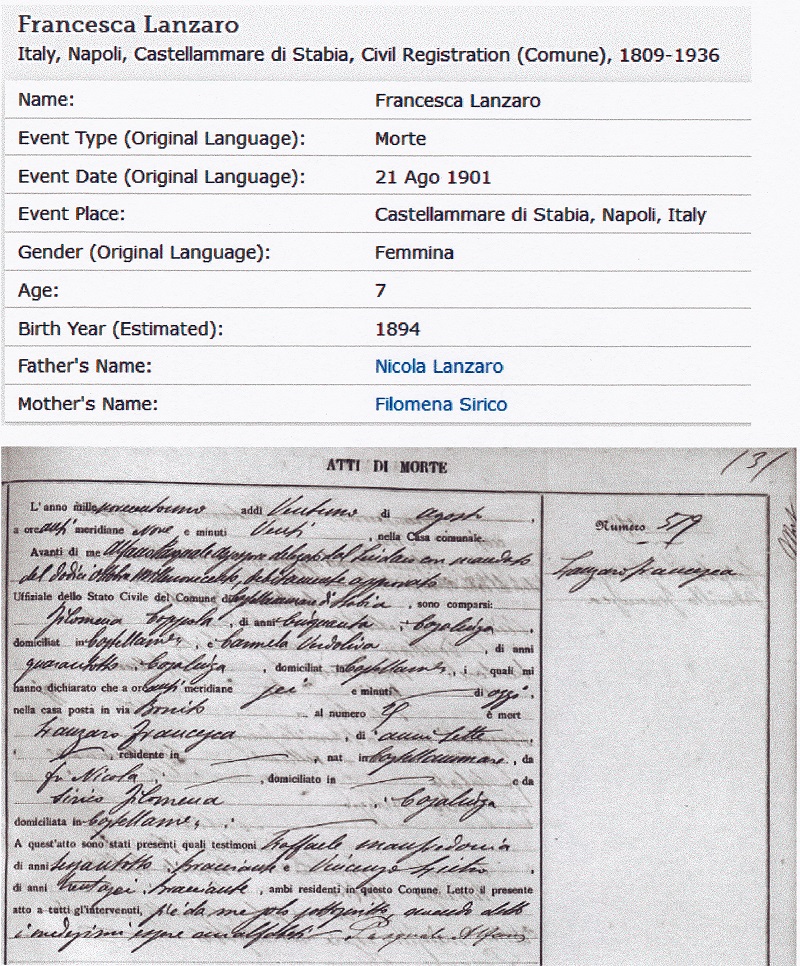 Francesca Lanzaro
Italy, Napoli, Castellammare di Stabia, Civil Registration (Comune), 1809-1936
Name: Francesca Lanzaro
Event Type (Original Language): Morte
Event Date (Original Language): 21 Ago 1901
Event Place: Castellammare di Stabia, Napoli, Italy
Gender (Original Language): Femmina
Age: 7
Birth Year (Estimated): 1894
Father's Name: Nicola Lanzaro
Mother's Name: Filomena Sirico
ATTI DI MORTE 131
L'anno millenovecentouno addì Ventuno di Agosto,
a ore anti meridiane Nove e minuti Venti, nella Casa comunale.
Numero 579
Avanti di me Alfano Pasquale delegato dal Sindaco con mandato
Lanzaro Francesca
del dodici ottobre millenovecento, debitamente approvato
Uffiziale dello Stato Civile del Comune di Castellammare di Stabia, sono comparsi:
Filomena Coppola, di anni cinquanta, Casalinga,
domiciliat in Castellamre, e Carmela Verdoliva, di anni
quarantotto, Casalinga, domiciliat in Castellamre, i quali mi
hanno dichiarato che a ore anti meridiane sei e minuti di oggi,
nella casa posta in via Bonito al numero è mort
Lanzaro Francesca, di anni sette,
residente in, nat in Castellammare, da
fu Nicola, domiciliato in e da
Sirico Filomena, Casalinga
domiciliata in Castellamre,
A quest'atto sono stati presenti quali testimoni Raffaele Manfredonia
di anni, Bracciante e Vincenzo,
di anni trentasei, bracciante, ambi residenti in questo Comune. Letto il presente
atto a tutti gl'intervenuti, si è da me solo sottoscritto, avendo detto
i medesimi essere analfabeti Pasquale Alfano